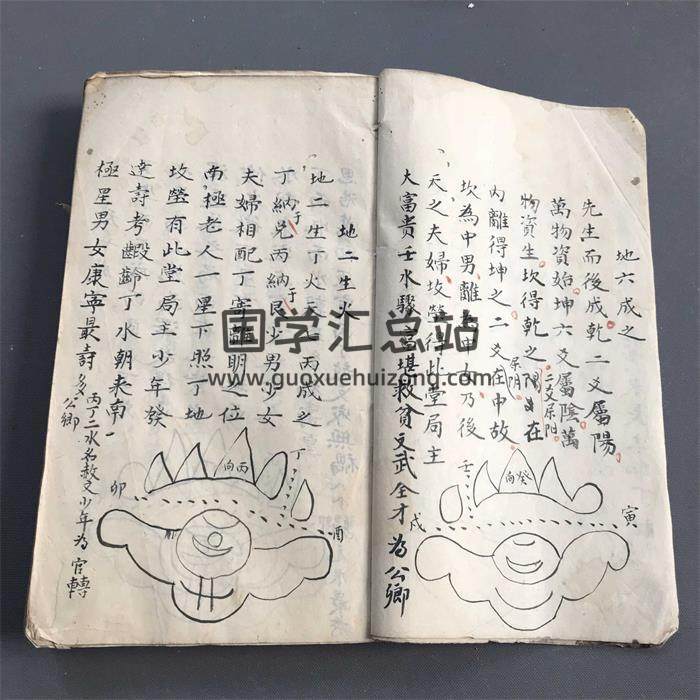 地六成之
先生而後成乾二爻屬陽
萬物資始坤六爻屬陰萬
物資生坎得乾之
在
二爻原陽
內離得坤之二爻在中故
原陰
坎為中男離為中女乃後
天之夫婦坟塋得此堂局主
大富貴壬水驟當堪救貧文武全才為公卿
癸向
壬
戌
寅
地二生火
地二生丁火天七丙成之
丁納于兌丙納于艮少男少女
夫婦相配丁寄離明之位
南極老人一星下照丁地
坟塋有此堂局主少年發
達壽考毀齡丁水朝來南一
極星男女康寧最
多公卿
丙丁二水名赦文少年為官轉
丙向
丁
卯
酉
国学汇总站
www.guoxuehuizong.com